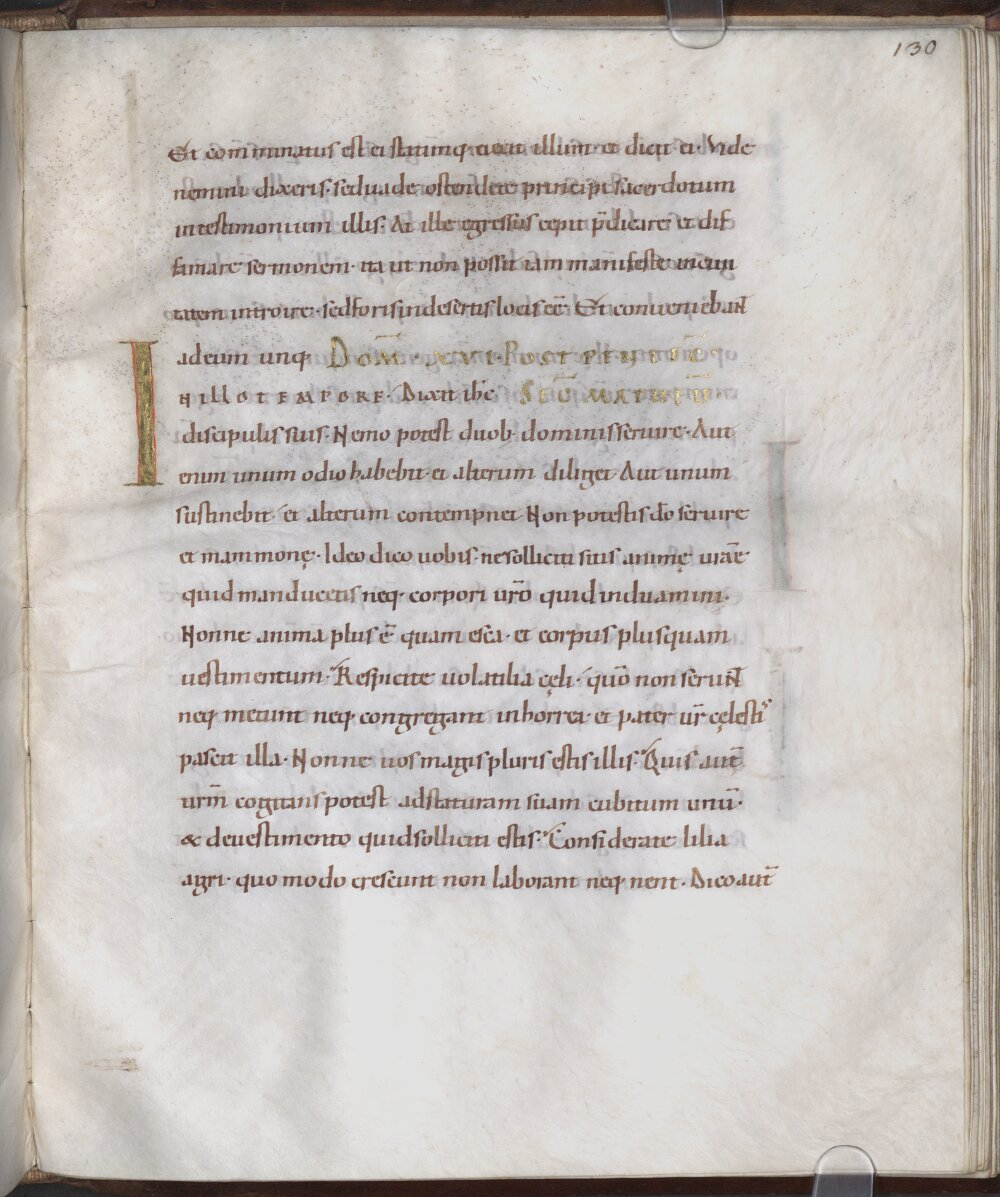 130
Et comminatus est ei statimq; eiecit illum· et dicit ei· Vide
nemini dixeris· sed uade ostende te principi sacerdotum
in testimonium illis· At ille egressus cepit p̄dicare et dif
famare sermonem· ita ut non possit iam manifeste in ciui
tatem introire· sed foris in desertis locis eē· Et conueniebant
ad eum undiq; DOM̄· XVI· POST PENTEC̄
N ILLO TEMPORE· Dixit ihc̄ SCD̄M MATHEŪ·
I discipulis suis· Nemo potest duob; dominis seruire· Aut
enim unum odio habebit· et alterum diliget Aut unum
sustinebit· et alterum contempnet Non potestis dō seruire
et mammonę· Ideo dico uobis· ne solliciti sitis animę urāe
quid manducetis neq; corpori urō quid induamini·
Nonne anima plus ē quam esca· et corpus plus quam
uestimentum· Respicite uolatilia cęli· quō non serunt
neq; metunt neq; congregant in horrea· et pater ur̄ cęlestis
pascit illa· Nonne uos magis pluris estis illis· Quis aut̄
urm̄ cogitans potest ad staturam suam cubitum unū·
& de uestimento quid solliciti estis· Considerate lilia
agri· quomodo crescunt non laborant neq; nent· Dico aut̄